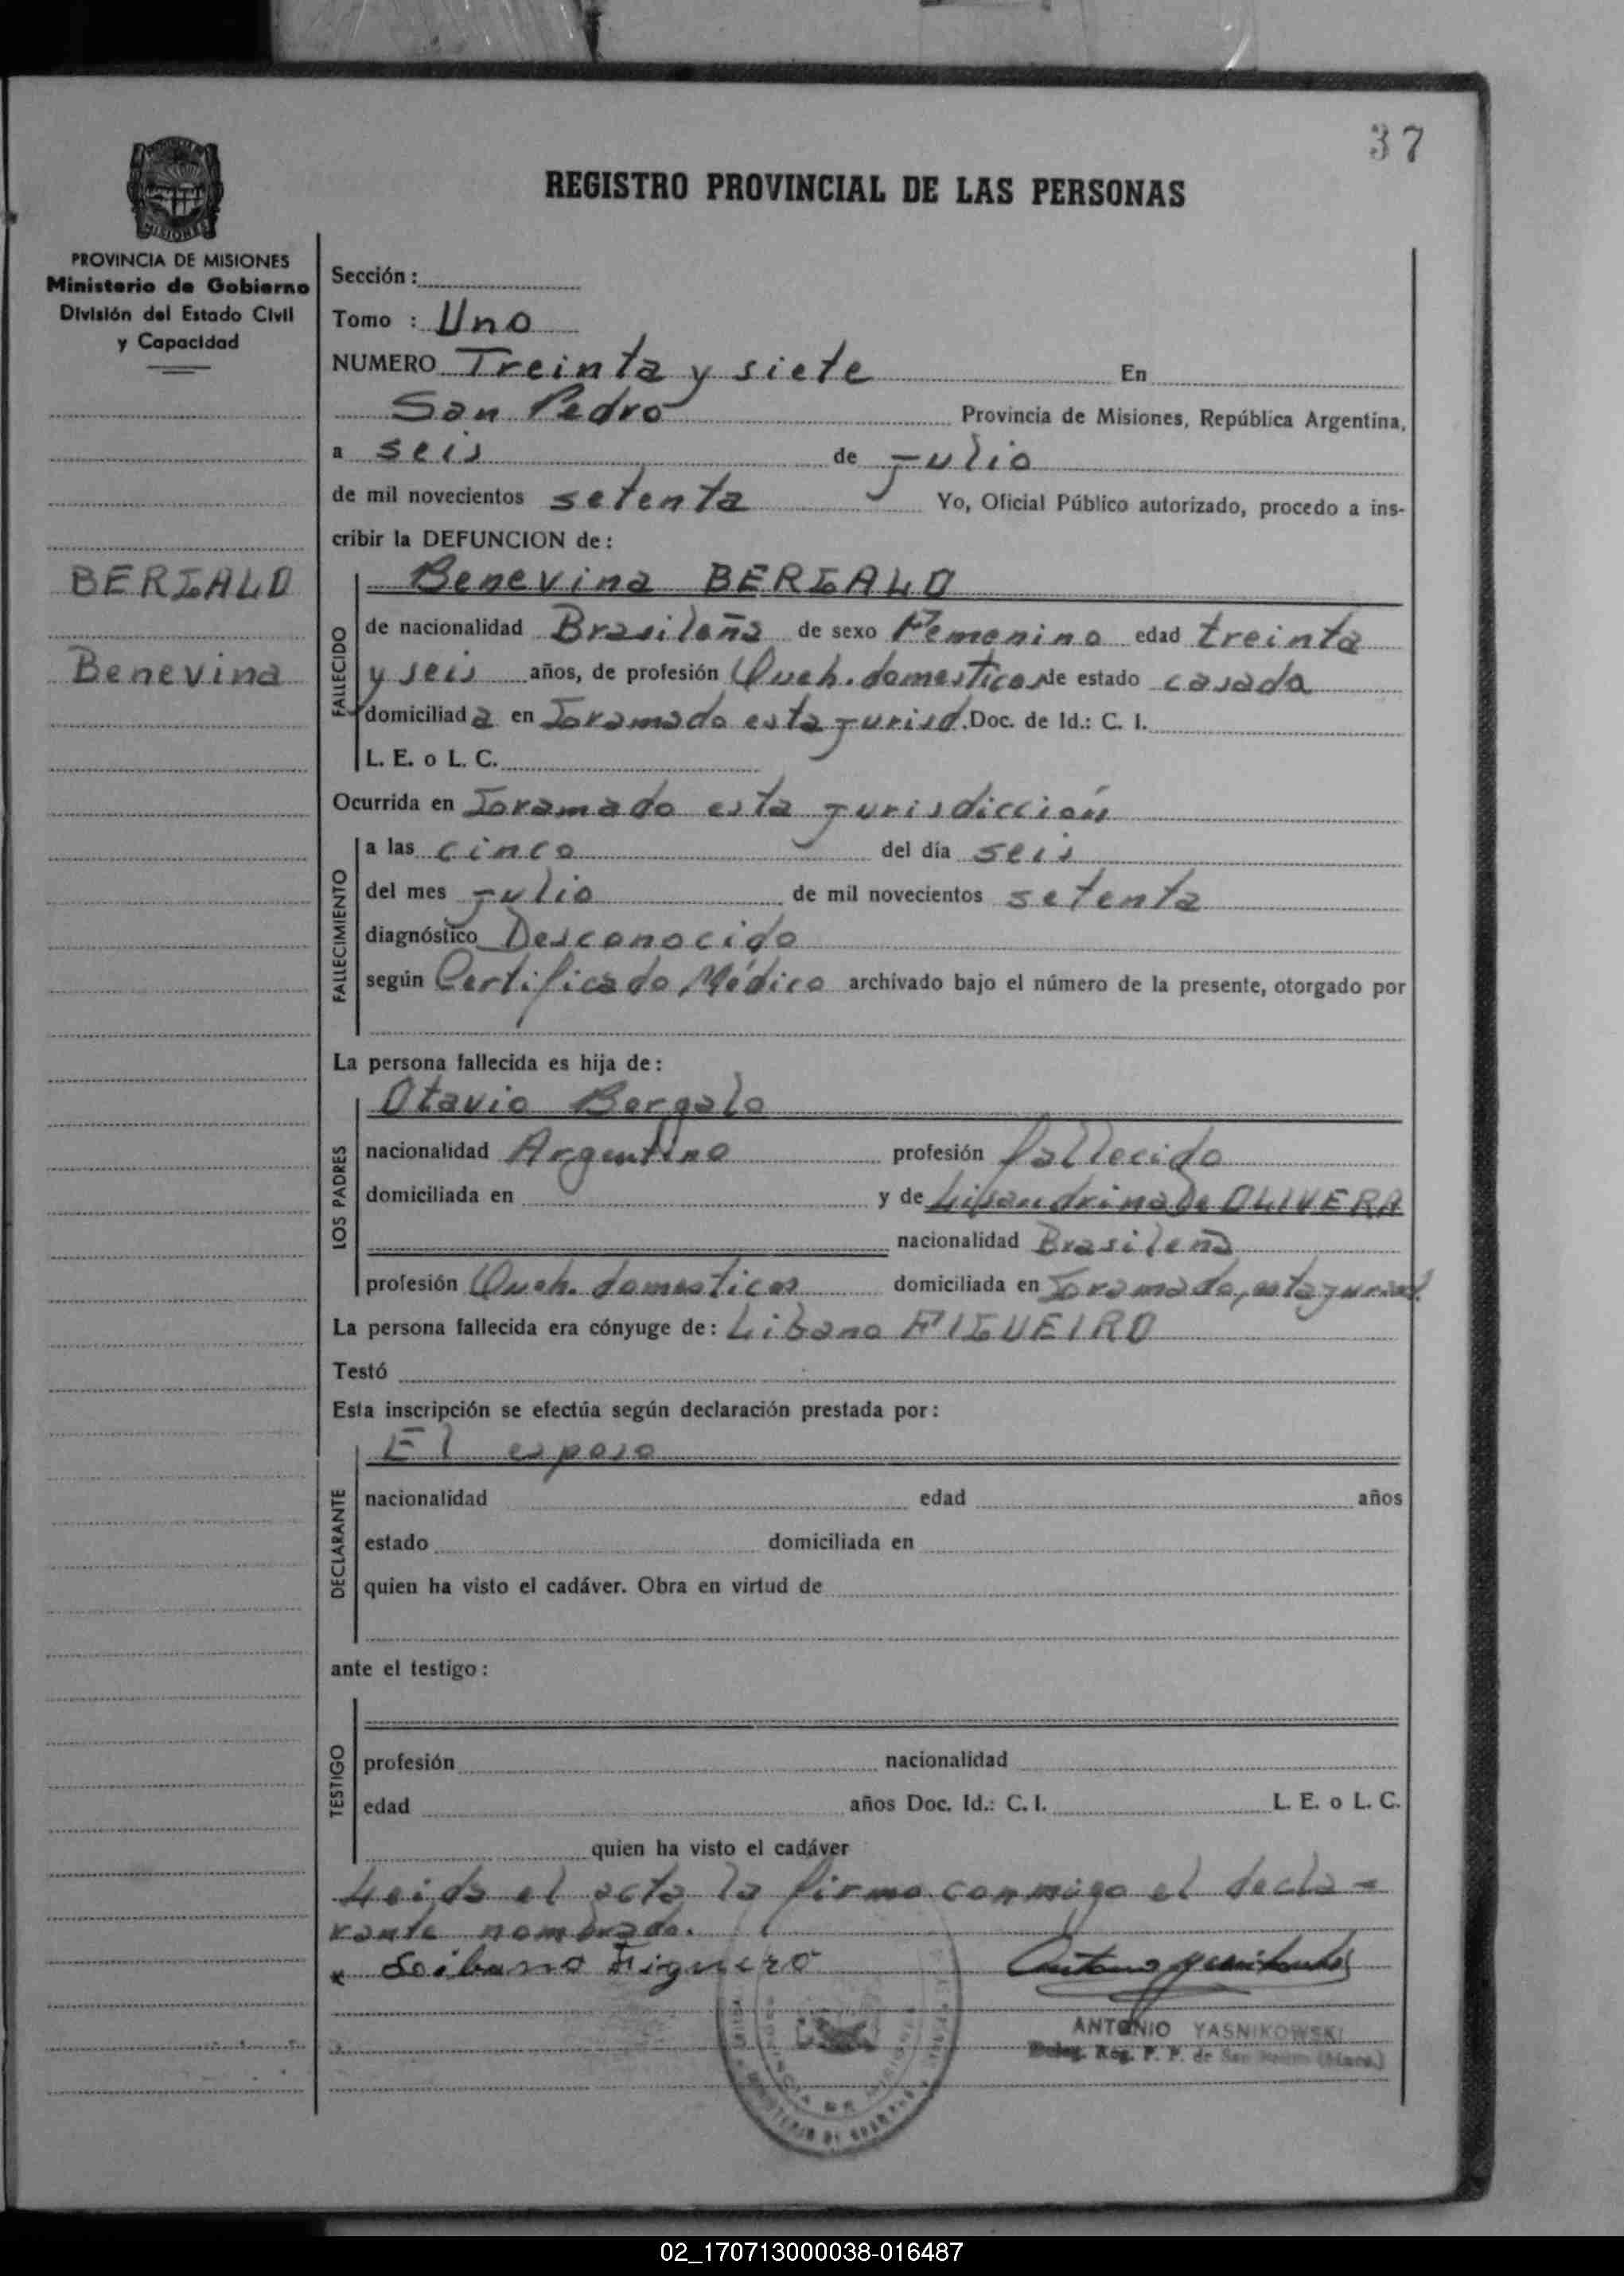 37
REGISTRO PROVINCIAL DE LAS PERSONAS
MISIONES
PROVINCIA DE MISIONES
Ministerio de Gobierno
División del Estado Civil
y Capacidad
BERGALO
Benevina
Sección :
Tomo : Uno
NUMERO Treinta y siete En
San Pedro Provincia de Misiones, República Argentina,
a seis de julio
de mil novecientos setenta Yo, Oficial Público autorizado, procedo a ins-
cribir la DEFUNCION de :
Benevina BERGALO
FALLECIDO
de nacionalidad Brasileña de sexo Femenino edad treinta
y seis años, de profesión Queh. domesticos de estado casada
domiciliad a en Toramado esta jurisd. Doc. de Id.: C. I.
L. E. o L. C.
Ocurrida en Toramado esta jurisdicción
FALLECIMIENTO
a las cinco del día seis
del mes julio de mil novecientos setenta
diagnóstico Desconocido
según Certificado Médico archivado bajo el número de la presente, otorgado por
La persona fallecida es hija de :
LOS PADRES
Otavio Bergalo
nacionalidad Argentino profesión fallecido
domiciliada en y de Lisandrina De OLIVERA
nacionalidad Brasileña
profesión Queh. domesticos domiciliada en Toramado, esta jurisd.
La persona fallecida era cónyuge de : Libano FIGUEIRO
Testó
Esta inscripción se efectúa según declaración prestada por :
DECLARANTE
El esposo
nacionalidad edad años
estado domiciliada en
quien ha visto el cadáver. Obra en virtud de
ante el testigo :
TESTIGO
profesión nacionalidad
edad años Doc. Id.: C. I. L. E. o L. C.
quien ha visto el cadáver
Leida el acta la firma conmigo el decla-
rante nombrado.
x Leibano Figuero
ANTONIO YASNIKOWSKI
Deleg. Reg. P. P. de San (Mnes.)
02_170713000038-016487